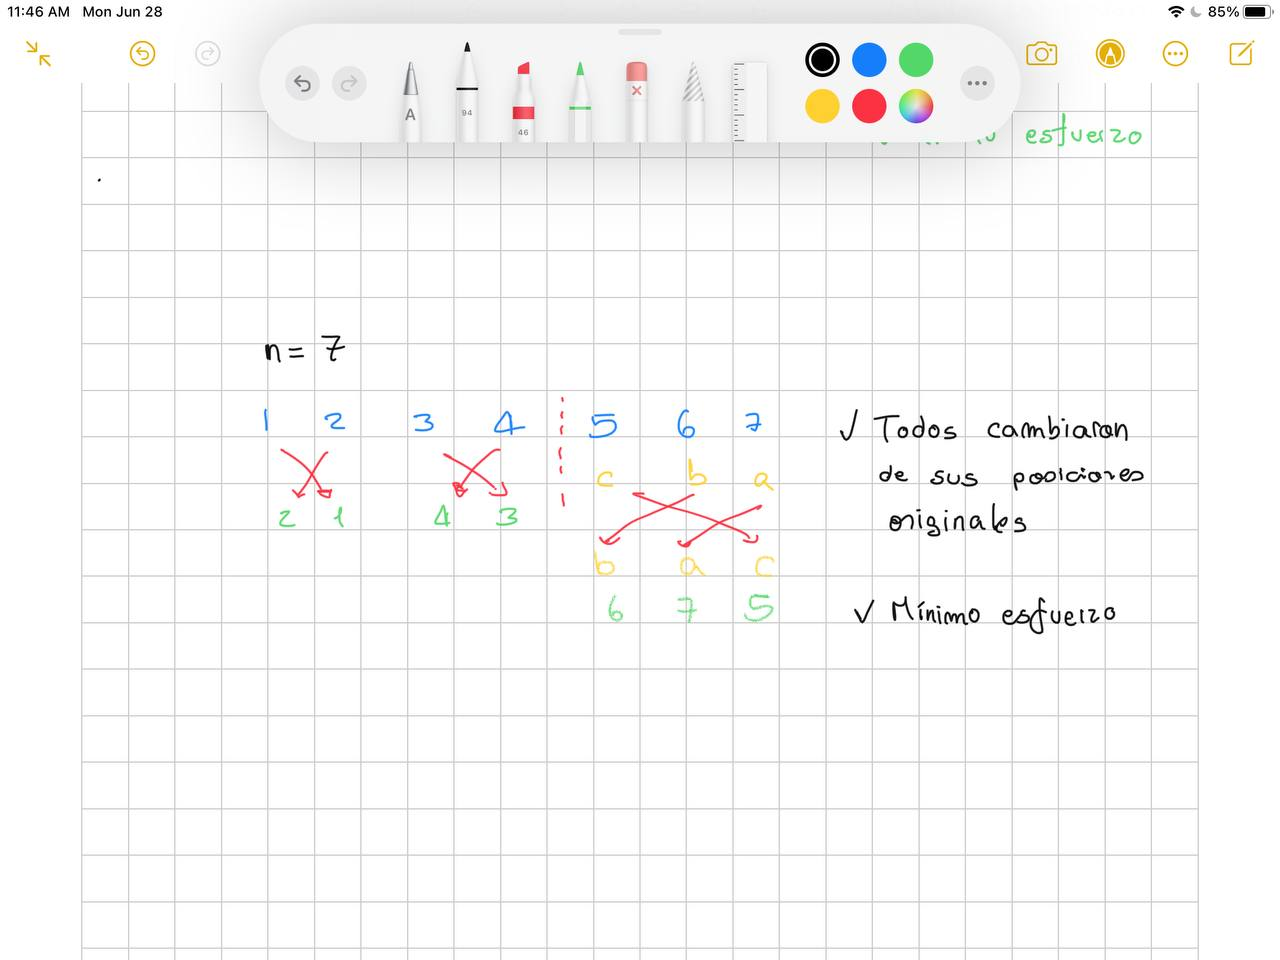 11:46 AM Mon Jun 28 85%
A 94 46
esfuerzo
n = 7
1 2 3 4 5 6 7
c b a
2 1 4 3
b a c
6 7 5
✓ Todos cambiaron
de sus posiciones
originales
✓ Mínimo esfuerzo